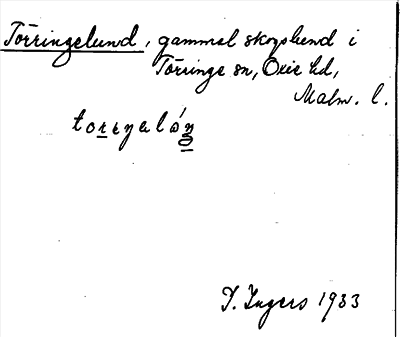 Törringelund, gammal skogslund i
Törringe sn, Oxie hd,
Malm. l.
I. Ingers 1933